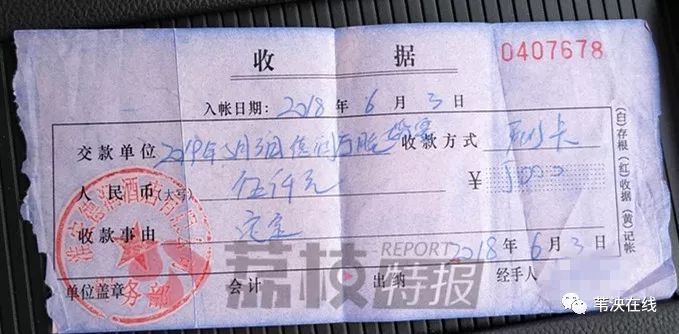 收 据
0407678
入帐日期: 2018 年 6 月 3 日
交款单位 2019年5月3日 收款方式 刷卡
人民币(大写) 伍仟元 ¥ 5000
收款事由 定金
2018 年 6 月 3 日
单位盖章 会计 出纳 经手人
(白)存根 (红)收据 (黄)记帐
务部
REPORT
荔枝特报
苇泱在线